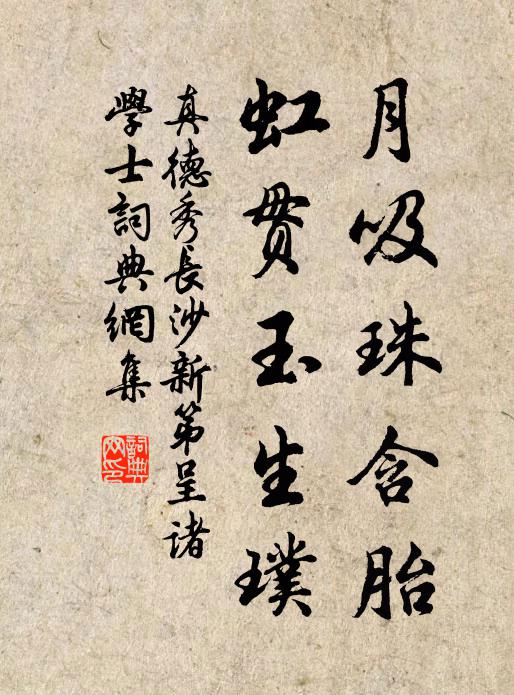 月吸珠含胎
虹贯玉生璞
真德秀長沙新第呈诸
學士詞典網集
詞典網印